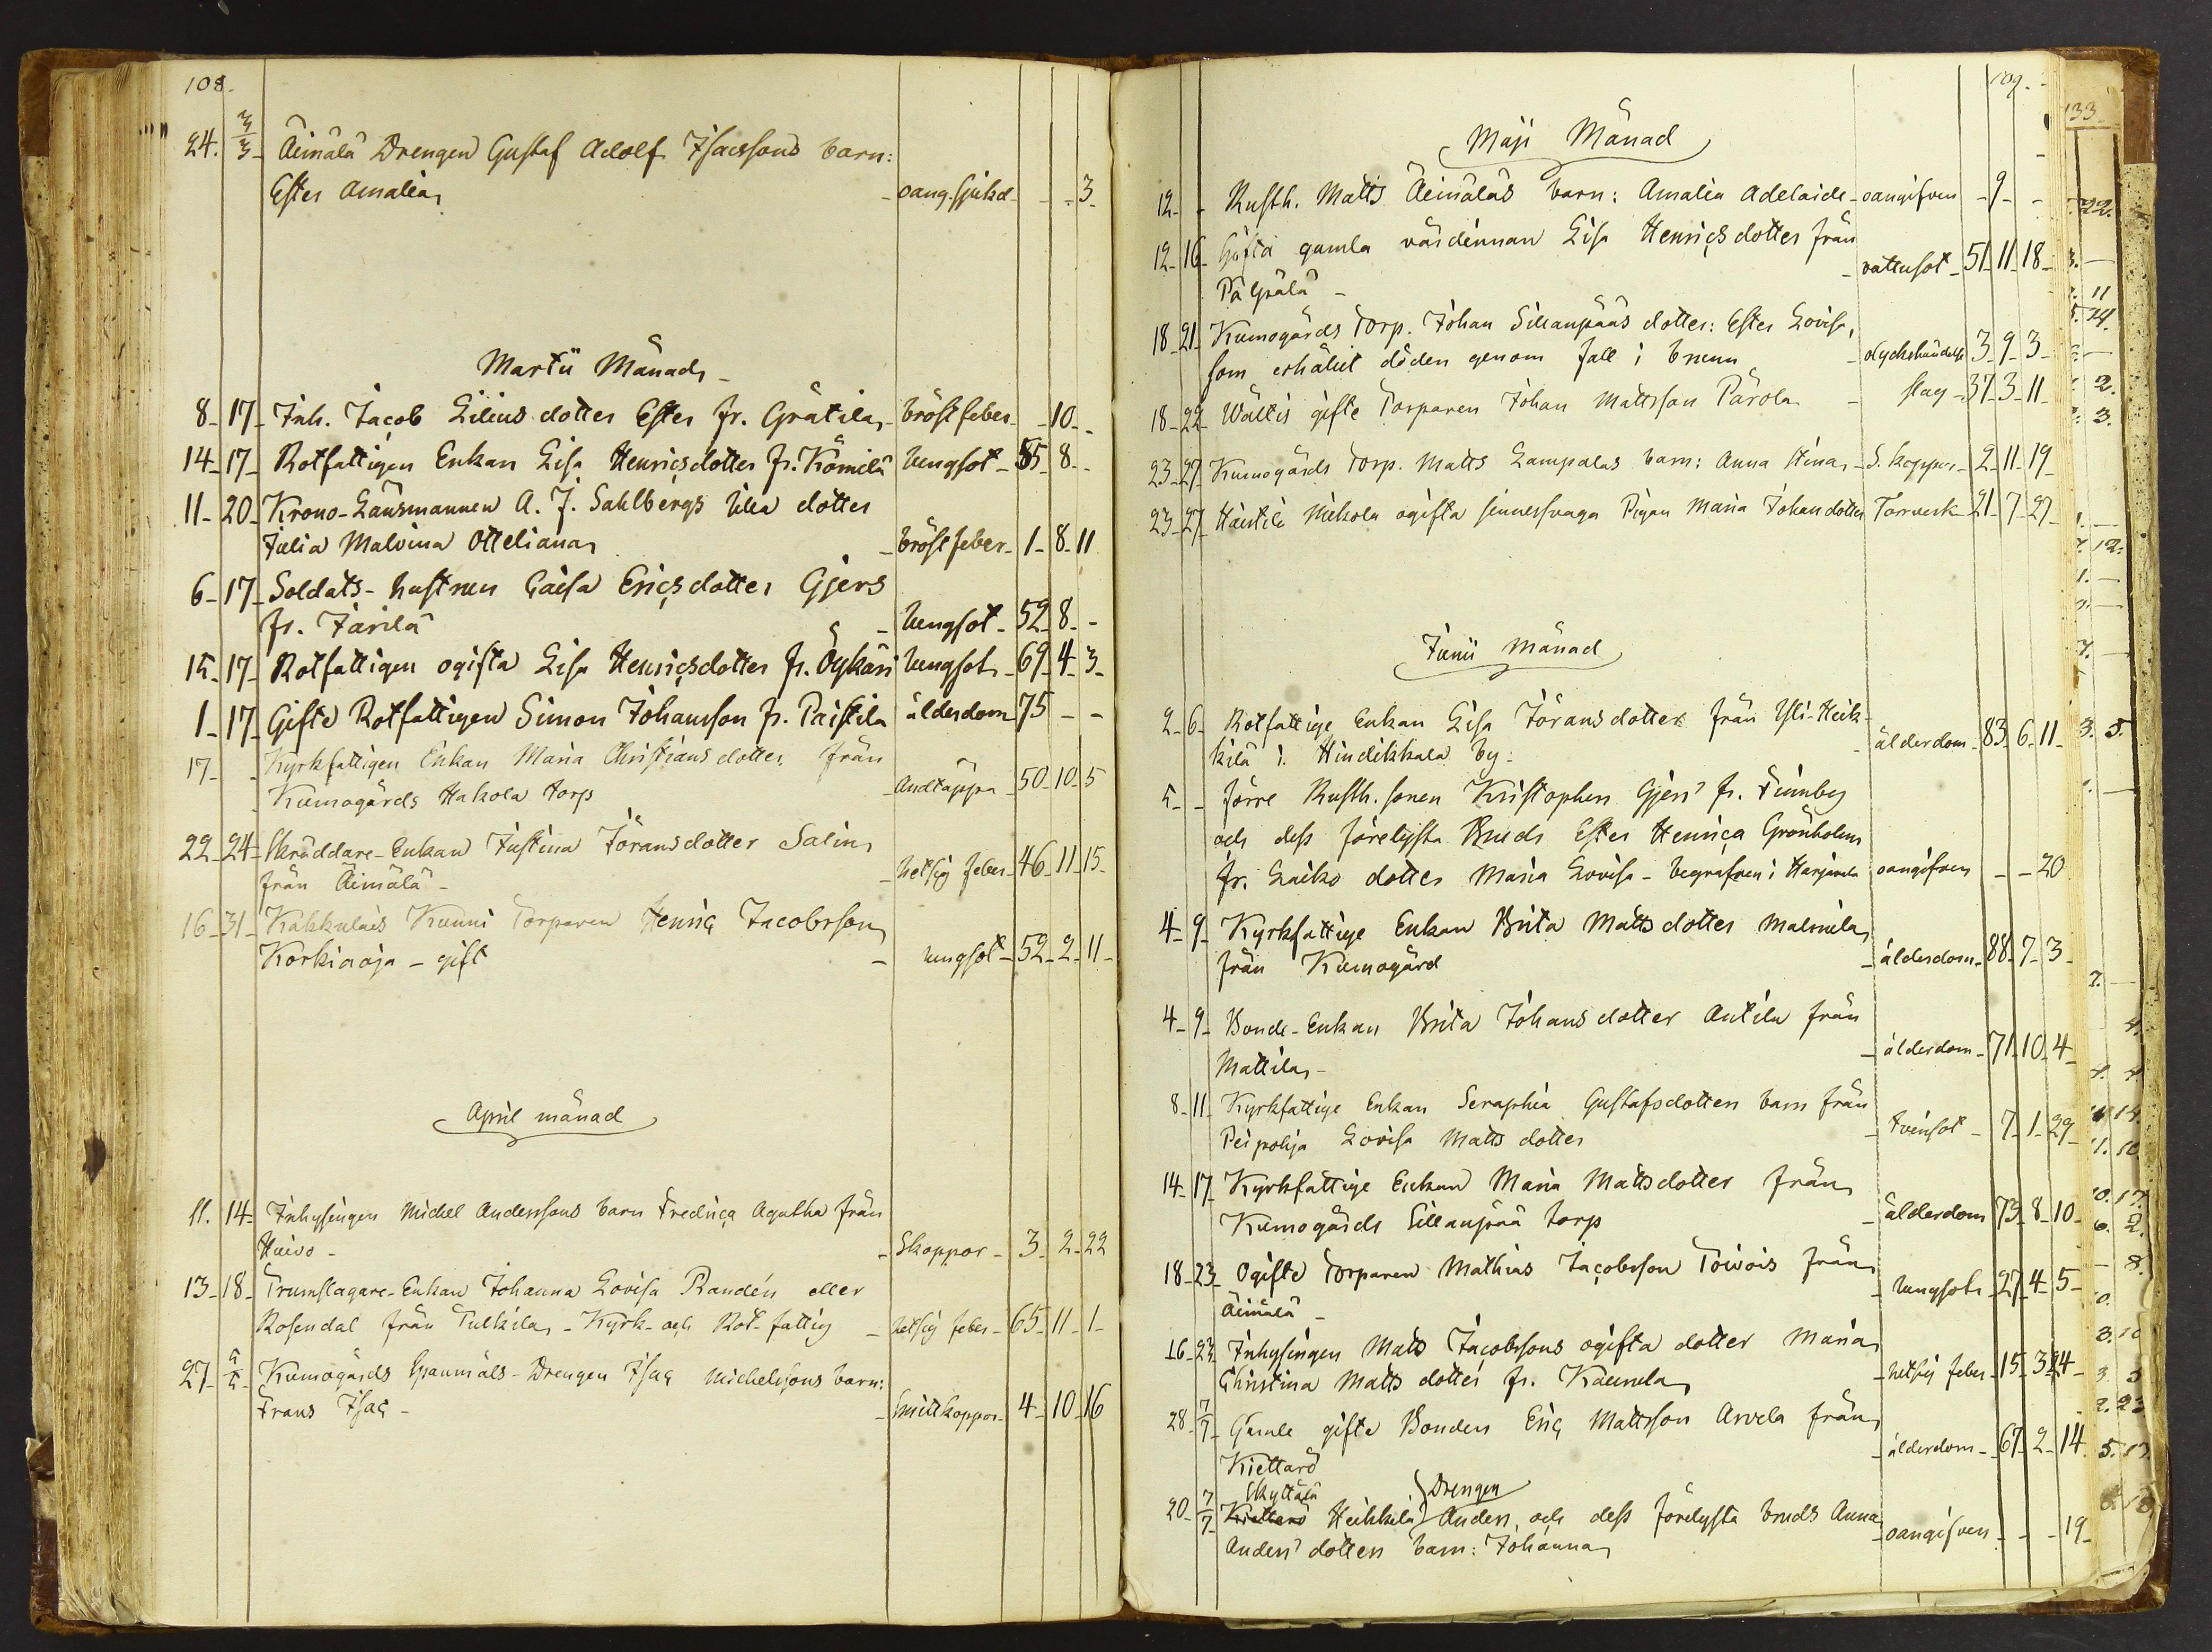 108.
24. 3/3 Äimälä Drengen Gustaf Adolf Isacssons barn:
Ester Amalia - oang. sjukd - - 3
Martii Månad
8 - 17 - Inh. Jacob Lilius dotter Ester fr. Grätila - bröstfeber - 10 -
14 - 17 - Rotfattigen Enkan Lisa Henricsdotter fr. Kömilä lungsot - 55 - 8 -
11 - 20 - Krono-Länsmannen A. J. Sahlbergs lilla dotter
Julia Malvina Otteliana - bröstfeber - 1 - 8 - 11
6 - 17 - Soldats-hustrun Caisa Ericsdotter Gjers
fr. Järilä - lungsot - 52 - 8 -
15 - 17 - Rotfattigen ogifta Lisa Henricsdotter fr. Öykäri lungsot - 69 - 4 - 3
1 - 17 - Gifte Rotfattigen Simon Johansson fr. Paistila ålderdom 75 - -
17 - - Kyrkfattigen Enkan Maria Christiansdotter från
Kumogårds Hakola torp - Andtäppa - 50 - 10 - 5
22 - 24 - Skräddare-Enkan Justina Jöransdotter Salin
från Äimälä - - hetsig feber - 46 - 11 - 15
16 - 31 - Kakkulais Kunni Torparen Henric Jacobsson
Korkiaoja - gift - lungsot - 52 - 2 - 11
April månad
11. 14 - Inhysingen Michel Anderssons barn Fredrica Agatha från
Haivo - - Skoppor - 3 - 2 - 22
13 - 18 - Trumslagare-Enkan Johanna Lovisa Randén eller
Rosendal från Tulkila - Kyrk- och Rot-fattig - hetsig feber - 65 - 11 - 1
27 - 5/5 Kumogårds Spanmåls-Drengen Isac Michelssons barn:
Frans Isac - - Småkoppor - 4 - 10 - 16
109.
Maji Månad
12 - - Rusth. Matts Äimäläs barn: Amalia Adelaide - oangifven - 9 - -
12 - 16 - Gifta gamla värdinnan Lisa Henricsdotter från
Pälpälä - - vattusot - 51 - 11 - 18
18 - 21 - Kumogårds Torp. Johan Sillanpääs dotter: Ester Lovisa,
som erhållit döden genom fall i brunn - olyckshändelse 3 - 9 - 3
18 - 22 - Wältis gifte Torparen Johan Mattsson Pärola - slag - 37 - 3 - 11
23 - 27 - Kumogårds Torp. Matts Lampalas barn: Anna Stina - S. koppor - 2 - 11 - 19
23 - 27 - Häntilä Nikola ogifta sinnessvaga Pigan Maria Johansdotter Torrverk - 21 - 7 - 27
Junii månad
2 - 6 - Rotfattige Enkan Lisa Jöransdotter från Yli-Heik-
kilä i Hindikkala by - - ålderdom - 83 - 6 - 11
5 - - förre Rusth. sonen Kristopher Gjers' fr. Finnby
och dess förelysta Bruds Ester Henrica Grönholms
fr. Laiko dotter Maria Lovisa - begrafven i Harjavala oangifven - - 20
4 - 9 - Kyrkfattige Enkan Brita Mattsdotter Malmila
från Kumogård - ålderdom - 88 - 7 - 3
4 - 9 - Bonde-Enkan Brita Johansdotter Antila från
Mattila - - ålderdom - 71 - 10 - 4
8 - 11 - Kyrkfattige Enkan Seraphia Gustafsdotters barn från
Peipohja Lovisa Mattsdotter - tvinsot - 7 - 1 - 29
14 - 17 - Kyrkfattige Enkan Maria Mattsdotter från
Kumogårds Sillanpää torp - ålderdom 73 - 8 - 10
18 - 23 - Ogifte Torparen Mathias Jacobsson Toivois från
Äimälä - - lungsot - 27 - 4 - 5
16 - 23 Inhysingen Matts Jacobssons ogifta dotter Maria
Christina Mattsdotter fr. Kaurula - hetsig feber - 15 - 3 - 24
28 - 7/7 Gamle gifte Bonden Eric Mattsson Arvela från
Kiettarö - ålderdom - 67 - 2 - 14
Skyttälä Drengen
20 - 7/7 Kiettarö Heikkilä Anders och dess förelysta bruds Anna
Anders'dotters barn: Johanna - oangifven - - 19
133